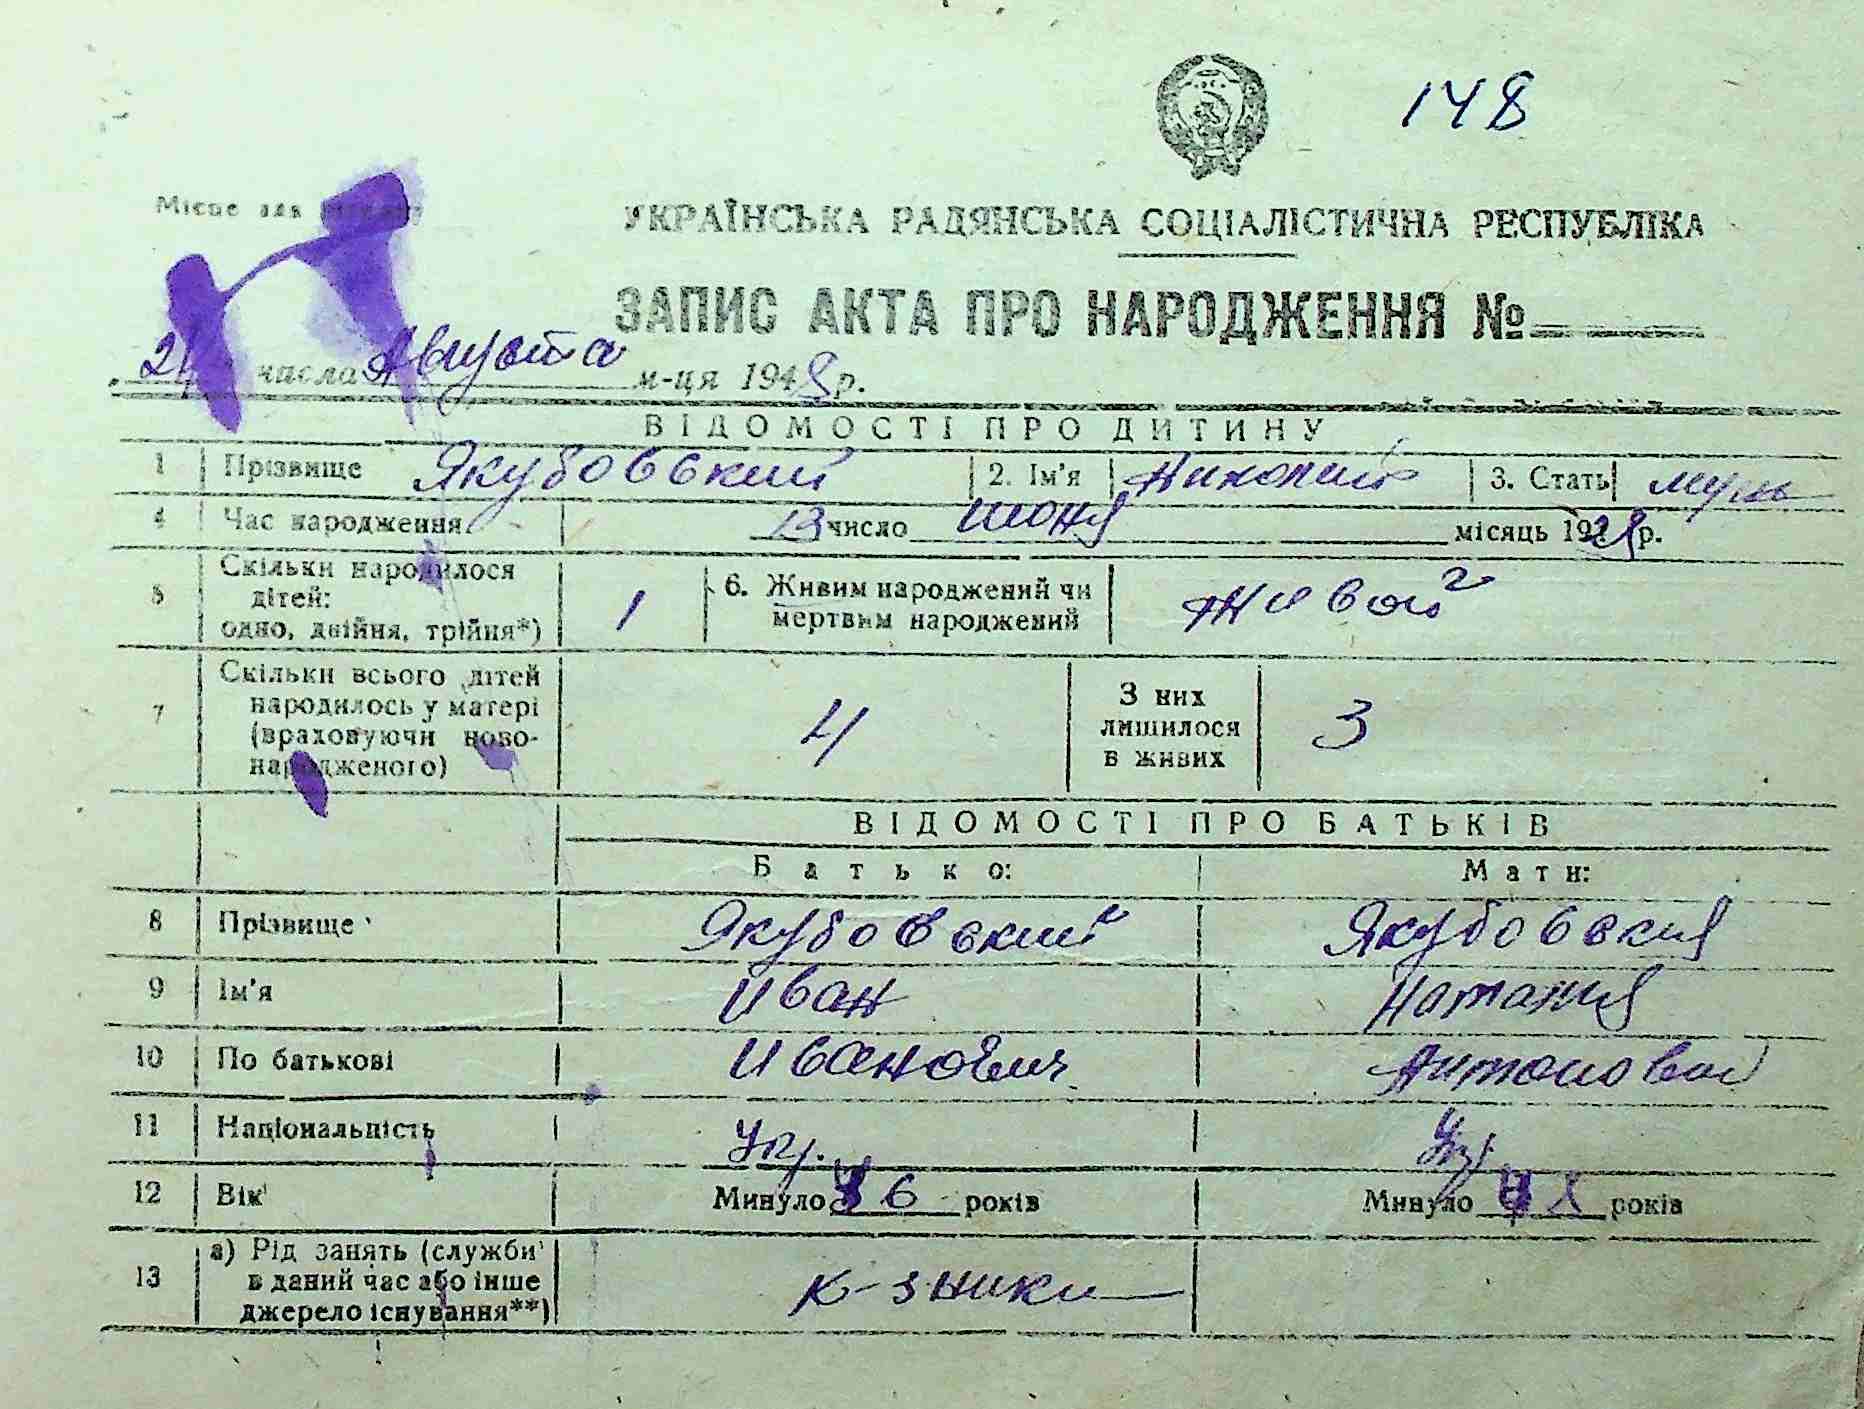 148
Місце для
УКРАЇНСЬКА РАДЯНСЬКА СОЦІАЛІСТИЧНА РЕСПУБЛІКА
ЗАПИС АКТА ПРО НАРОДЖЕННЯ №
числа Августа м-ця 1948 р.
ВІДОМОСТІ ПРО ДИТИНУ
1 Прізвище Якубовський 2. Ім'я Николай 3. Стать муж
4 Час народження 13 число июня місяць 19 р.
5 Скільки народилося дітей: одно, двійня, трійня*) 1 6. Живим народжений чи мертвим народжений живой
7 Скільки всього дітей народилось у матері (враховуючи ново-народженого) 4 З них лишилося в живих 3
ВІДОМОСТІ ПРО БАТЬКІВ
Батько: Мати:
8 Прізвище Якубовський Якубовская
9 Ім'я Иван Наталия
10 По батькові Иванович Антоновна
11 Національність Укр. Укр
12 Вік Минуло 6 років Минуло років
13 а) Рід занять (служби в даний час або інше джерело існування**) к-зники